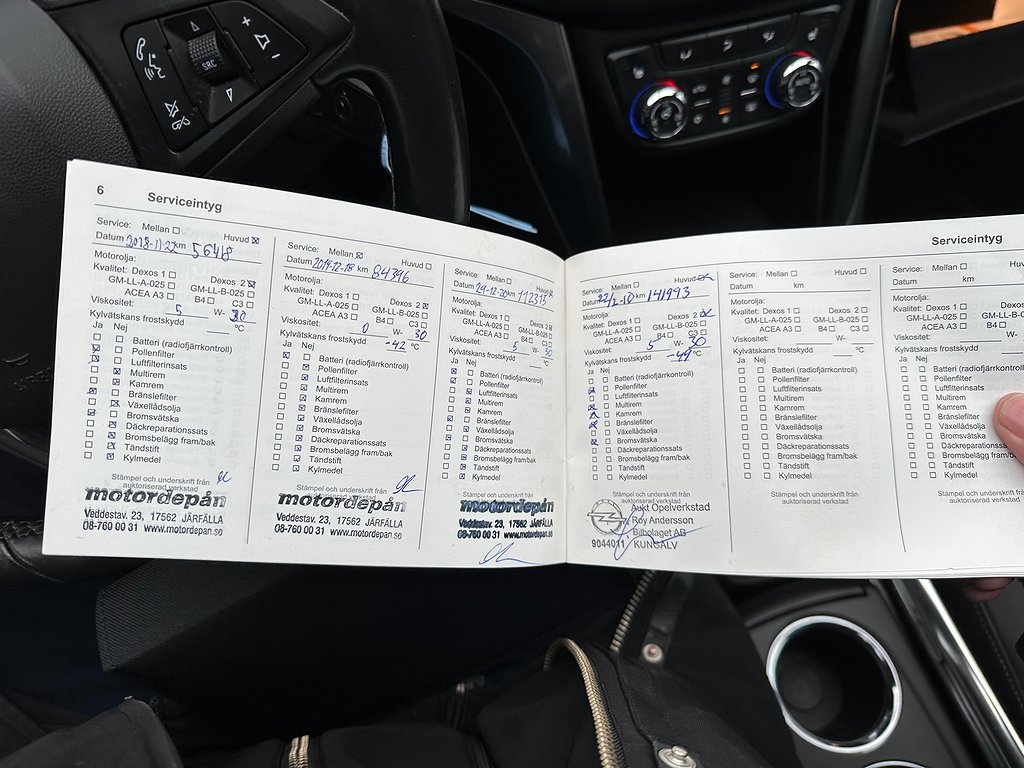 SRC
6
Serviceintyg
Service: Mellan ☐ Huvud ☒
Datum 2018-11-22 km 56418
Motorolja:
Kvalitet: Dexos 1 ☐ Dexos 2 ☒
GM-LL-A-025 ☐ GM-LL-B-025 ☐
ACEA A3 ☐ B4 ☐ C3 ☐
Viskositet: 5 W- 30
Kylvätskans frostskydd °C
Ja Nej
Batteri (radiofjärrkontroll)
Pollenfilter
Luftfilterinsats
Multirem
Kamrem
Bränslefilter
Växellådsolja
Bromsvätska
Däckreparationssats
Bromsbelägg fram/bak
Tändstift
Kylmedel
Stämpel och underskrift från
auktoriserad verkstad
motordepån
Veddestav. 23, 17562 JÄRFÄLLA
08-760 00 31 www.motordepan.se
Service: Mellan ☒ Huvud ☐
Datum 2019-12-18 km 84396
Motorolja:
Kvalitet: Dexos 1 ☐ Dexos 2 ☒
GM-LL-A-025 ☐ GM-LL-B-025 ☐
ACEA A3 ☐ B4 ☐ C3 ☐
Viskositet: 0 W- 30
Kylvätskans frostskydd -42 °C
Ja Nej
Batteri (radiofjärrkontroll)
Pollenfilter
Luftfilterinsats
Multirem
Kamrem
Bränslefilter
Växellådsolja
Bromsvätska
Däckreparationssats
Bromsbelägg fram/bak
Tändstift
Kylmedel
Stämpel och underskrift från
auktoriserad verkstad
motordepån
Veddestav. 23, 17562 JÄRFÄLLA
08-760 00 31 www.motordepan.se
Service: Mellan ☐ Huvud ☒
Datum 29-12-20 km 112315
Motorolja:
Kvalitet: Dexos 1 ☐ Dexos 2 ☒
GM-LL-A-025 ☐ GM-LL-B-025 ☐
ACEA A3 ☐ B4 ☐ C3 ☐
Viskositet: 5 W- 30
Kylvätskans frostskydd °C
Ja Nej
Batteri (radiofjärrkontroll)
Pollenfilter
Luftfilterinsats
Multirem
Kamrem
Bränslefilter
Växellådsolja
Bromsvätska
Däckreparationssats
Bromsbelägg fram/bak
Tändstift
Kylmedel
Stämpel och underskrift från
auktoriserad verkstad
motordepån
Veddestav. 23, 17562 JÄRFÄLLA
08-760 00 31 www.motordepan.se
Serviceintyg
Service: Mellan ☐ Huvud ☒
Datum km 141993
Motorolja:
Kvalitet: Dexos 1 ☐ Dexos 2 ☒
GM-LL-A-025 ☐ GM-LL-B-025 ☐
ACEA A3 ☐ B4 ☐ C3 ☐
Viskositet: 5 W- 30
Kylvätskans frostskydd °C
Ja Nej
Batteri (radiofjärrkontroll)
Pollenfilter
Luftfilterinsats
Multirem
Kamrem
Bränslefilter
Växellådsolja
Bromsvätska
Däckreparationssats
Bromsbelägg fram/bak
Tändstift
Kylmedel
Stämpel och underskrift från
auktoriserad verkstad
Aukt Opelverkstad
Roy Andersson
Bilbolaget AB
9044011 KUNGÄLV
Service: Mellan ☐ Huvud ☐
Datum km
Motorolja:
Kvalitet: Dexos 1 ☐ Dexos 2 ☐
GM-LL-A-025 ☐ GM-LL-B-025 ☐
ACEA A3 ☐ B4 ☐ C3 ☐
Viskositet: W-
Kylvätskans frostskydd °C
Ja Nej
Batteri (radiofjärrkontroll)
Pollenfilter
Luftfilterinsats
Multirem
Kamrem
Bränslefilter
Växellådsolja
Bromsvätska
Däckreparationssats
Bromsbelägg fram/bak
Tändstift
Kylmedel
Stämpel och underskrift från
auktoriserad verkstad
Service: Mellan ☐
Datum km
Motorolja:
Kvalitet: Dexos 1 ☐ Dexos
GM-LL-A-025 ☐ GM-LL-B-0
ACEA A3 ☐ B4 ☐ C
Viskositet: W-
Kylvätskans frostskydd
Ja Nej
Batteri (radiofjärrkontroll)
Pollenfilter
Luftfilterinsats
Multirem
Kamrem
Bränslefilter
Växellådsolja
Bromsvätska
Däckreparationssats
Bromsbelägg fram/bak
Tändstift
Kylmedel
Stämpel och underskrift från
auktoriserad verkstad